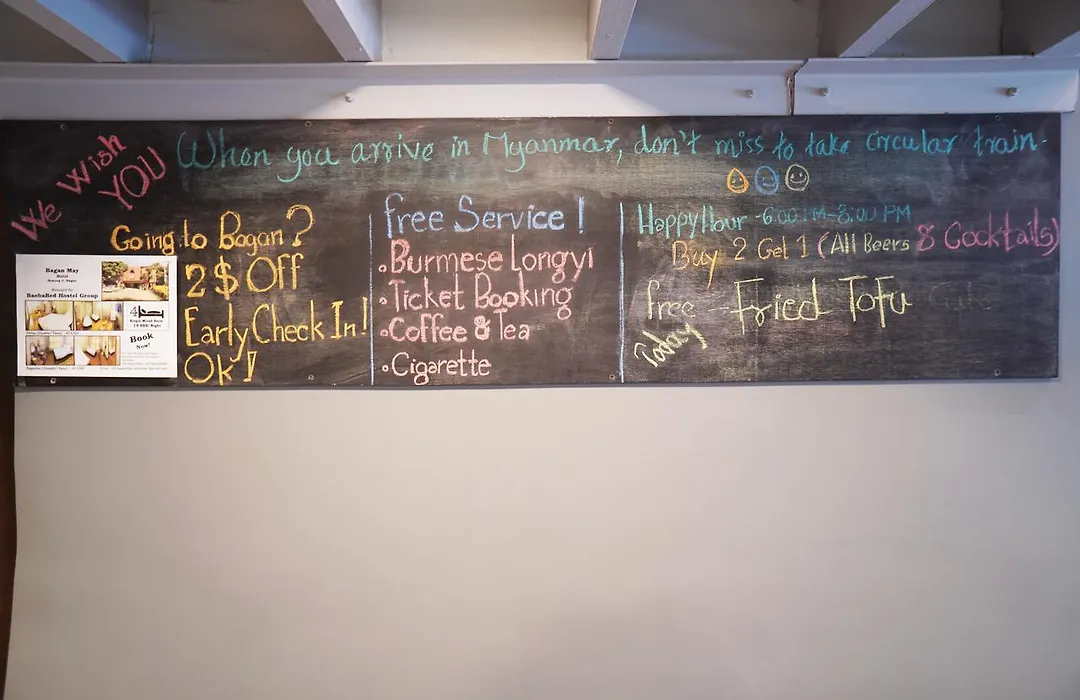 We Wish
YOU
When you arrive in Myanmar, don't miss to take circular train.
Going to Bagan?
2$ Off
Early Check In!
Ok!
Bagan May
Hostel
BaobaBed Hostel Group
Book
Now!
free Service!
.Burmese Longyi
.Ticket Booking
.Coffee & Tea
.Cigarette
Happy Hour -6:00 PM-8:00 PM
Buy 2 Get 1 (All Beers & Cocktails)
free - Fried Tofu
Today